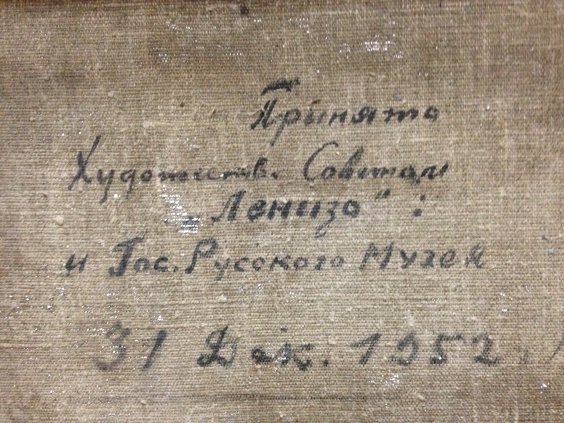 Принято
Художеств. Советам
„Лениз�о" :
и Гос. Русского Музея
31 Дек. 1952